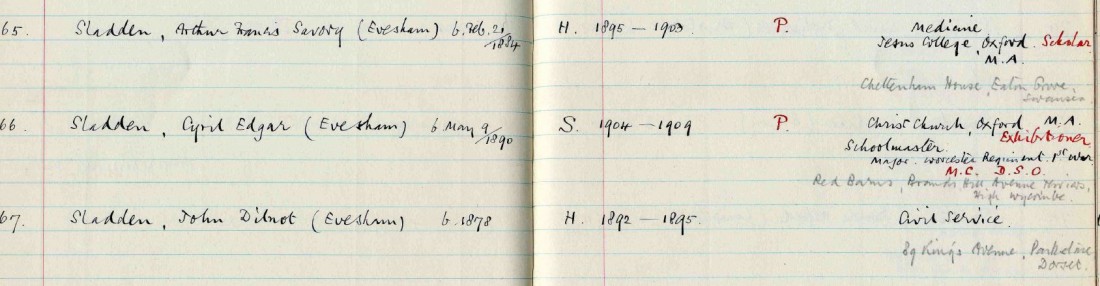 65. Sladden, Arthur Francis Savory (Evesham) b. Feb. 21/1884 H. 1895 – 1903 P. Medicine
Jesus College, Oxford. Scholar
M.A.
Cheltenham House, Eaton Grove,
Swansea
66. Sladden, Cyril Edgar (Evesham) b May 9/1890 S. 1904 – 1909 P. Christ Church, Oxford, M.A.
Exhibitioner
Schoolmaster.
Major. Worcester Regiment. 1st War
M.C. D.S.O.
Red Barns, Hill, Avenue
High Wycombe.
67. Sladden, John Dilnot (Evesham) b. 1878 H. 1892 – 1895. Civil Service.
89 Kings Avenue, Parkstone
Dorset.